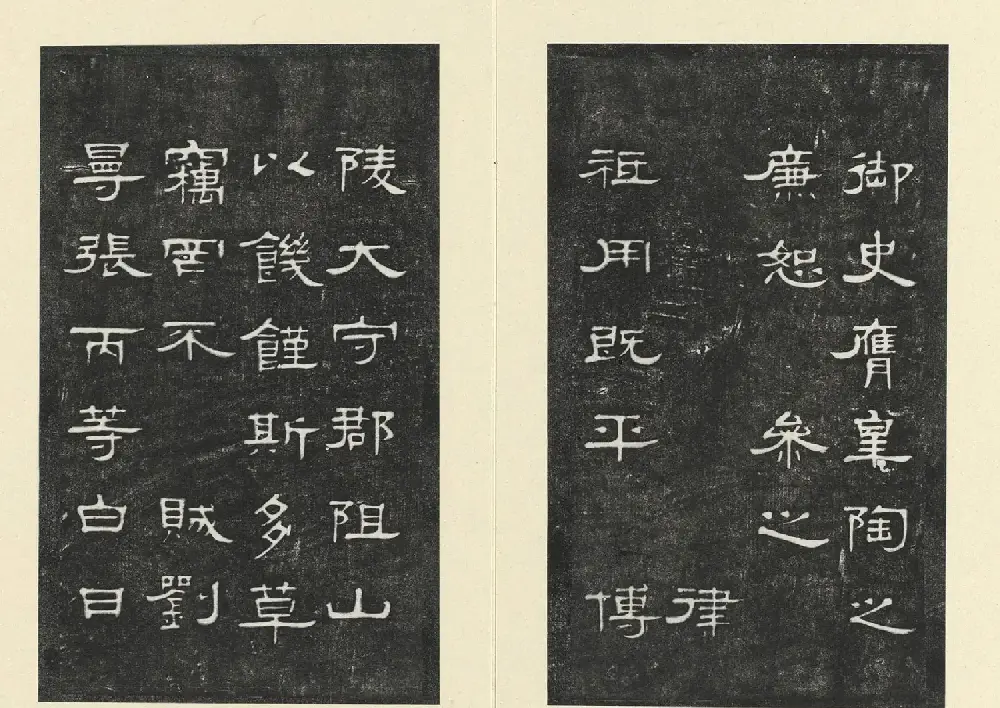 御史膺皋陶之
廉恕 參之
律
祗用既平 博
陵大守郡阻山
以饑饉斯多草
竊罔不 賊劉
曼張丙等白日